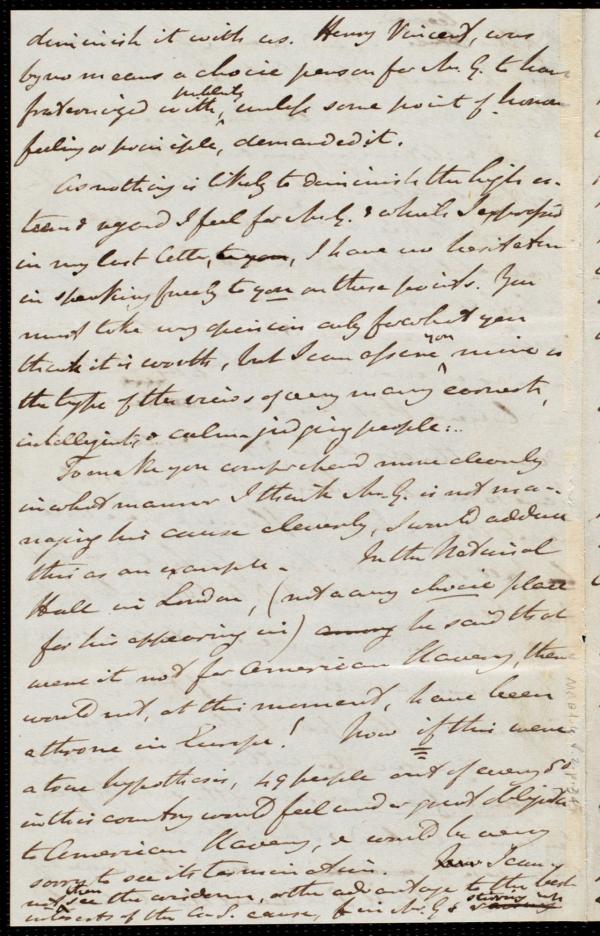 diminish it with us. Henry Vincent, was
by no means a choice person for Mr. G. to have
fraternized with, publicly unless some point of honor
feeling or principle, demanded it.
As nothing is likely to diminish the high es-
teem & regard I feel for Mr. G. & which I expressed
in my last letter, to you, I have no hesitation
in speaking freely to you on these points. You
must take my opinions only for what you
think it is worth, but I can assure you mine is
the type of the views of very many earnest,
intelligent, & calm judging people:..
To make you comprehend more clearly
in what manner I think Mr. G. is not ma-
naging his cause cleverly, I would adduce
this as an example. In the National
Hall in London, (not a very choice place
for his appearing in) he said that
were it not for American Slavery, there
would not, at this moment, have been
a throne in Europe! Now if this were
a true hypothesis, 49 people out of every 50
in this country would feel under great obligation
to American Slavery, & would be very
sorry to see its termination. Now I can-
not then see the wisdom, or the advantage to the best
interests of the A.S. cause, for in Mr. G's